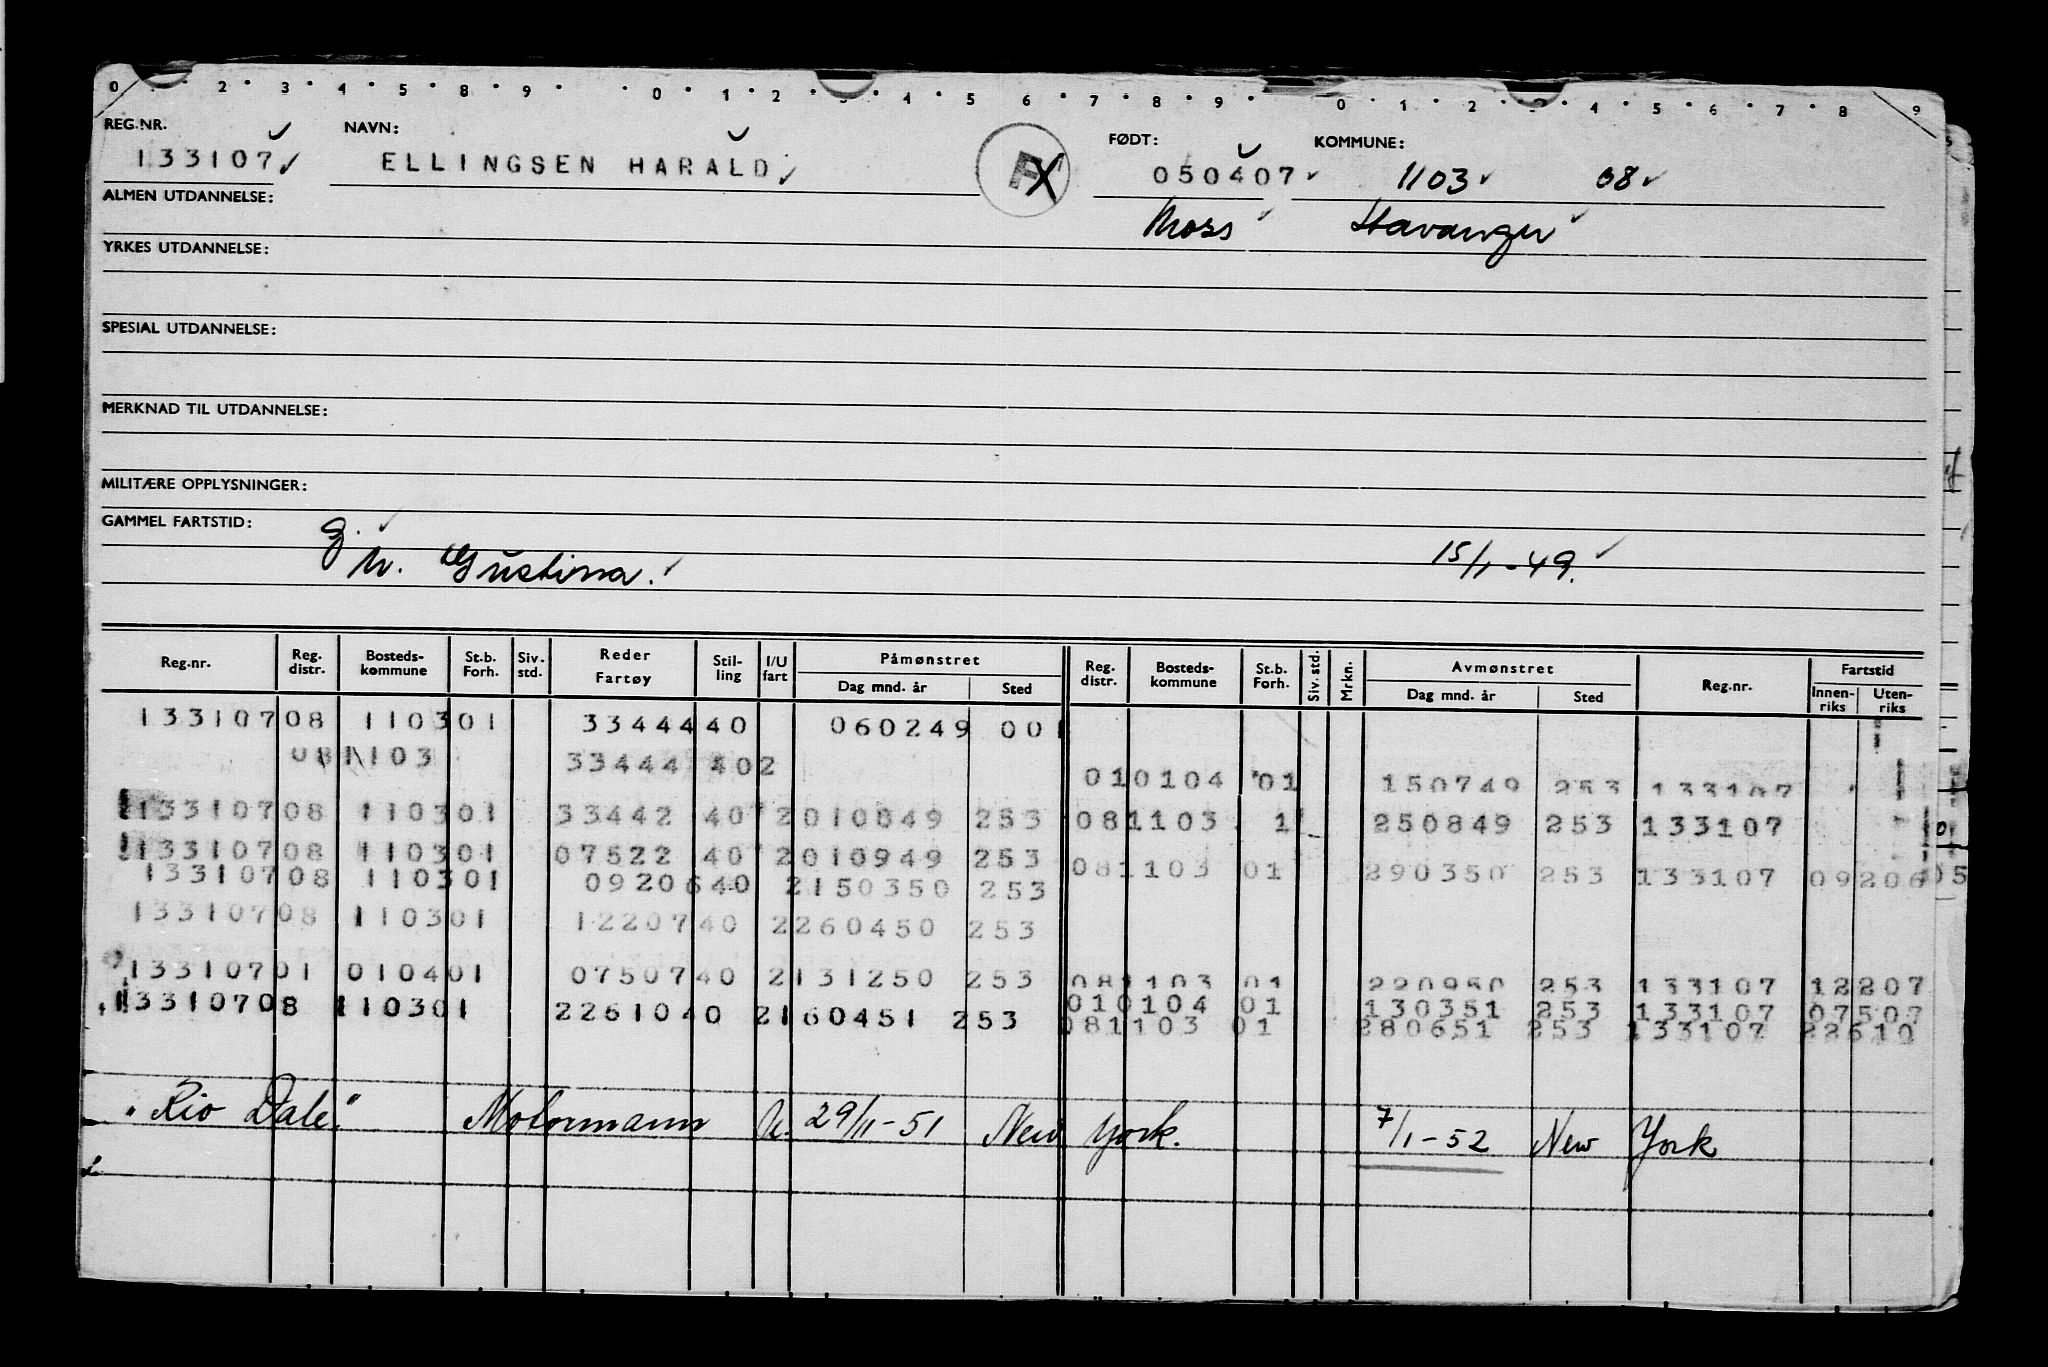 0 2 3 4 5 8 9 0 1 2 3 4 5 6 7 8 9 0 1 2 3 4 5 6 7 8 9
REG.NR. NAVN: FØDT: KOMMUNE:
133107 ELLINGSEN HARALD 050407 1103 08
ALMEN UTDANNELSE: Moss Stavanger
YRKES UTDANNELSE:
SPESIAL UTDANNELSE:
MERKNAD TIL UTDANNELSE:
MILITÆRE OPPLYSNINGER:
GAMMEL FARTSTID:
M. Gustina. 15/1-49.
Reg.nr. Reg. distr. Bosteds-kommune St.b. Forh. Siv. std. Reder Fartøy Stil-ling I/U fart Påmønstret Reg. distr. Bosteds-kommune St.b. Forh. Siv. std. Mrkn. Avmønstret Reg.nr. Fartstid
Dag mnd. år Sted Dag mnd. år Sted Innen-riks Uten-riks
133107 08 1103 01 33444 40 060249 001
08 1103 33444 40 2 01 0104 01 150749 253 133107
133107 08 1103 01 33442 40 2 010849 253 08 1103 1 250849 253 133107
133107 08 1103 01 07522 40 2 010949 253 08 1103 01 290350 253 133107 09206
133107 08 1103 01 09206 40 2 150350 253
133107 08 1103 01 12207 40 2 260450 253
133107 01 0104 01 07507 40 2 131250 253 08 1103 01 220950 253 133107 12207
133107 08 1103 01 22610 40 2 160451 253 01 0104 01 130351 253 133107 07507
08 1103 01 280651 253 133107 22610
"Rio Dale" Motormann U. 29/11-51 New York. 7/1-52 New York